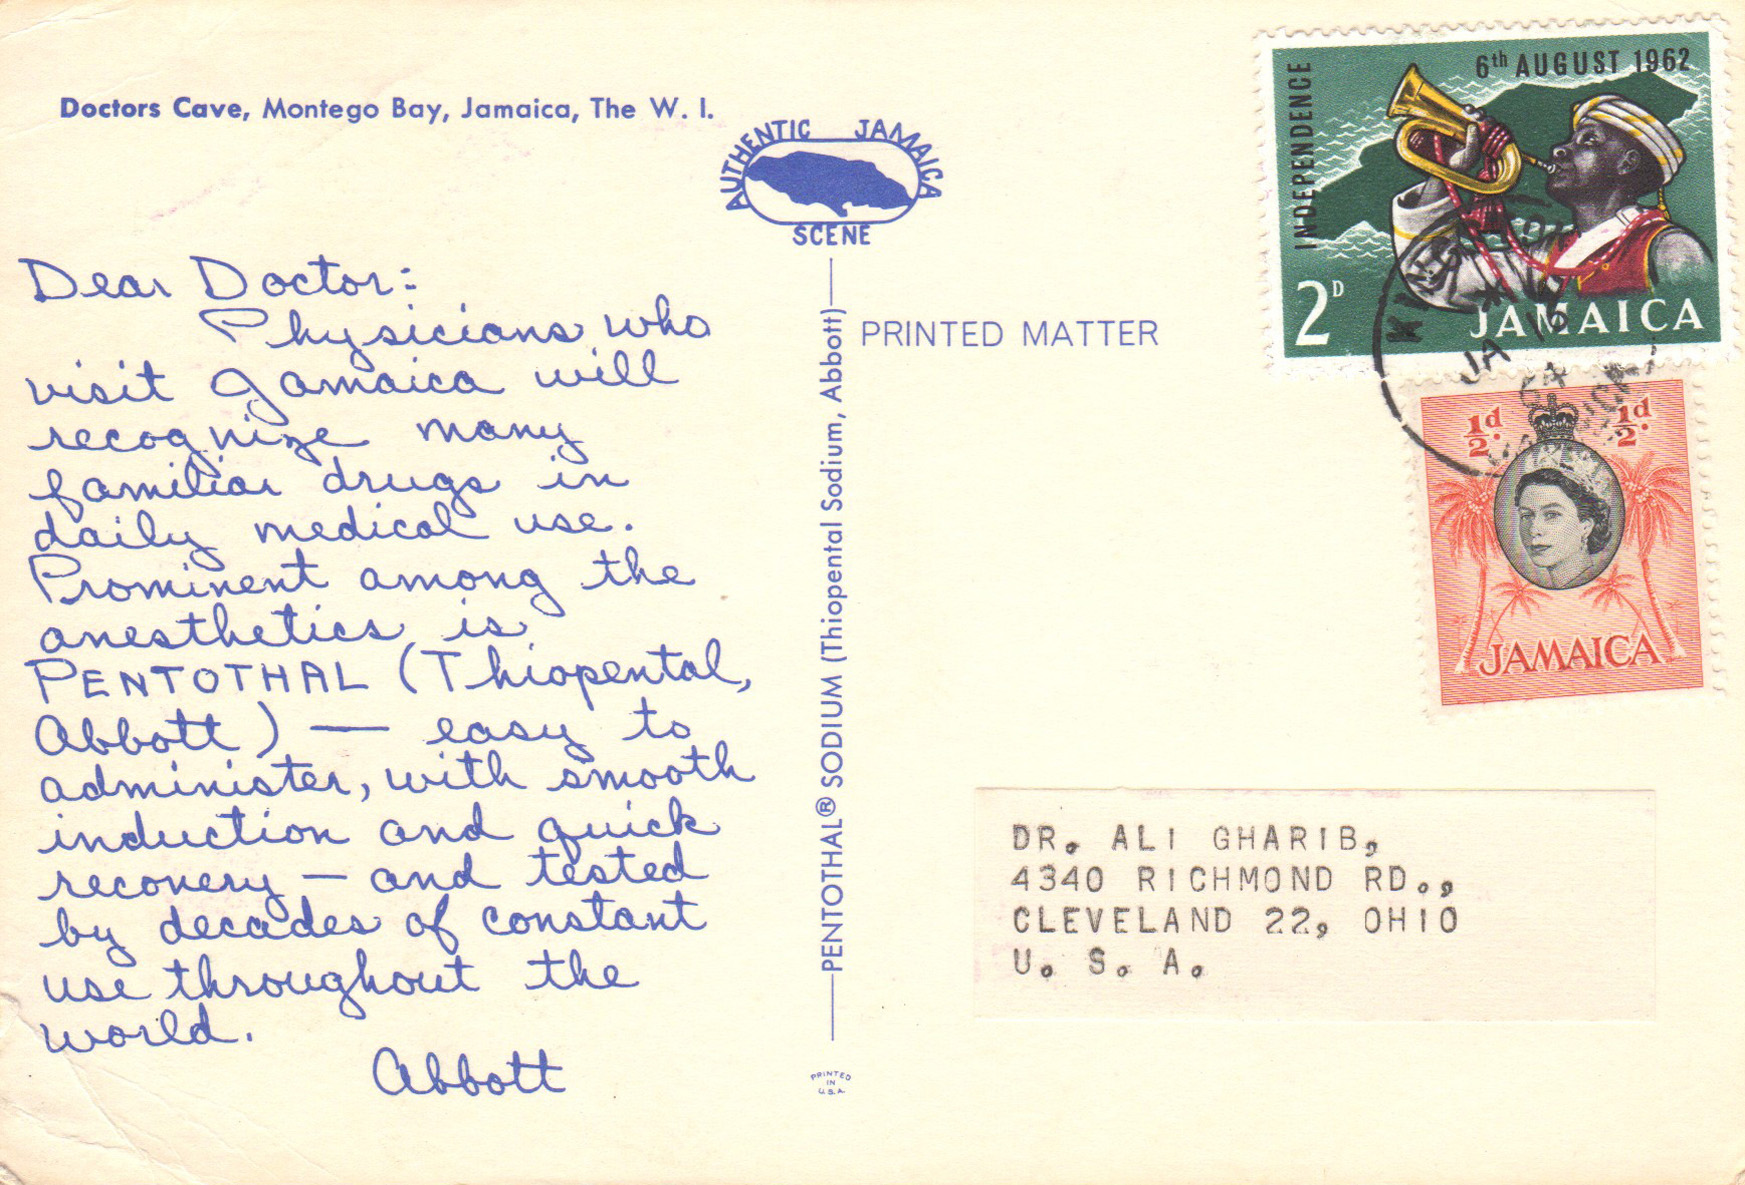 Doctors Cave, Montego Bay, Jamaica, The W. I.
AUTHENTIC JAMAICA
SCENE
Dear Doctor:
Physicians who
visit Jamaica will
recognize many
familiar drugs in
daily medical use.
Prominent among the
anesthetics is
PENTOTHAL (Thiopental,
Abbott) — easy to
administer, with smooth
induction and quick
recovery — and tested
by decades of constant
use throughout the
world.
Abbott
PENTOTHAL® SODIUM (Thiopental Sodium, Abbott)
PRINTED
IN
U.S.A.
PRINTED MATTER
INDEPENDENCE
6th AUGUST 1962
2D
JAMAICA
JA 16
64
½d.
½d.
JAMAICA
DR. ALI GHARIB,
4340 RICHMOND RD.,
CLEVELAND 22, OHIO
U. S. A.